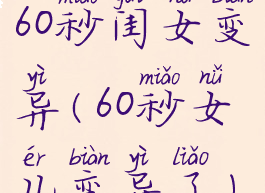 miǎo guī nǚ biàn
60秒闺女变
yì miǎo nǚ
异(60秒女
ér biàn yì liǎo
儿变异了)